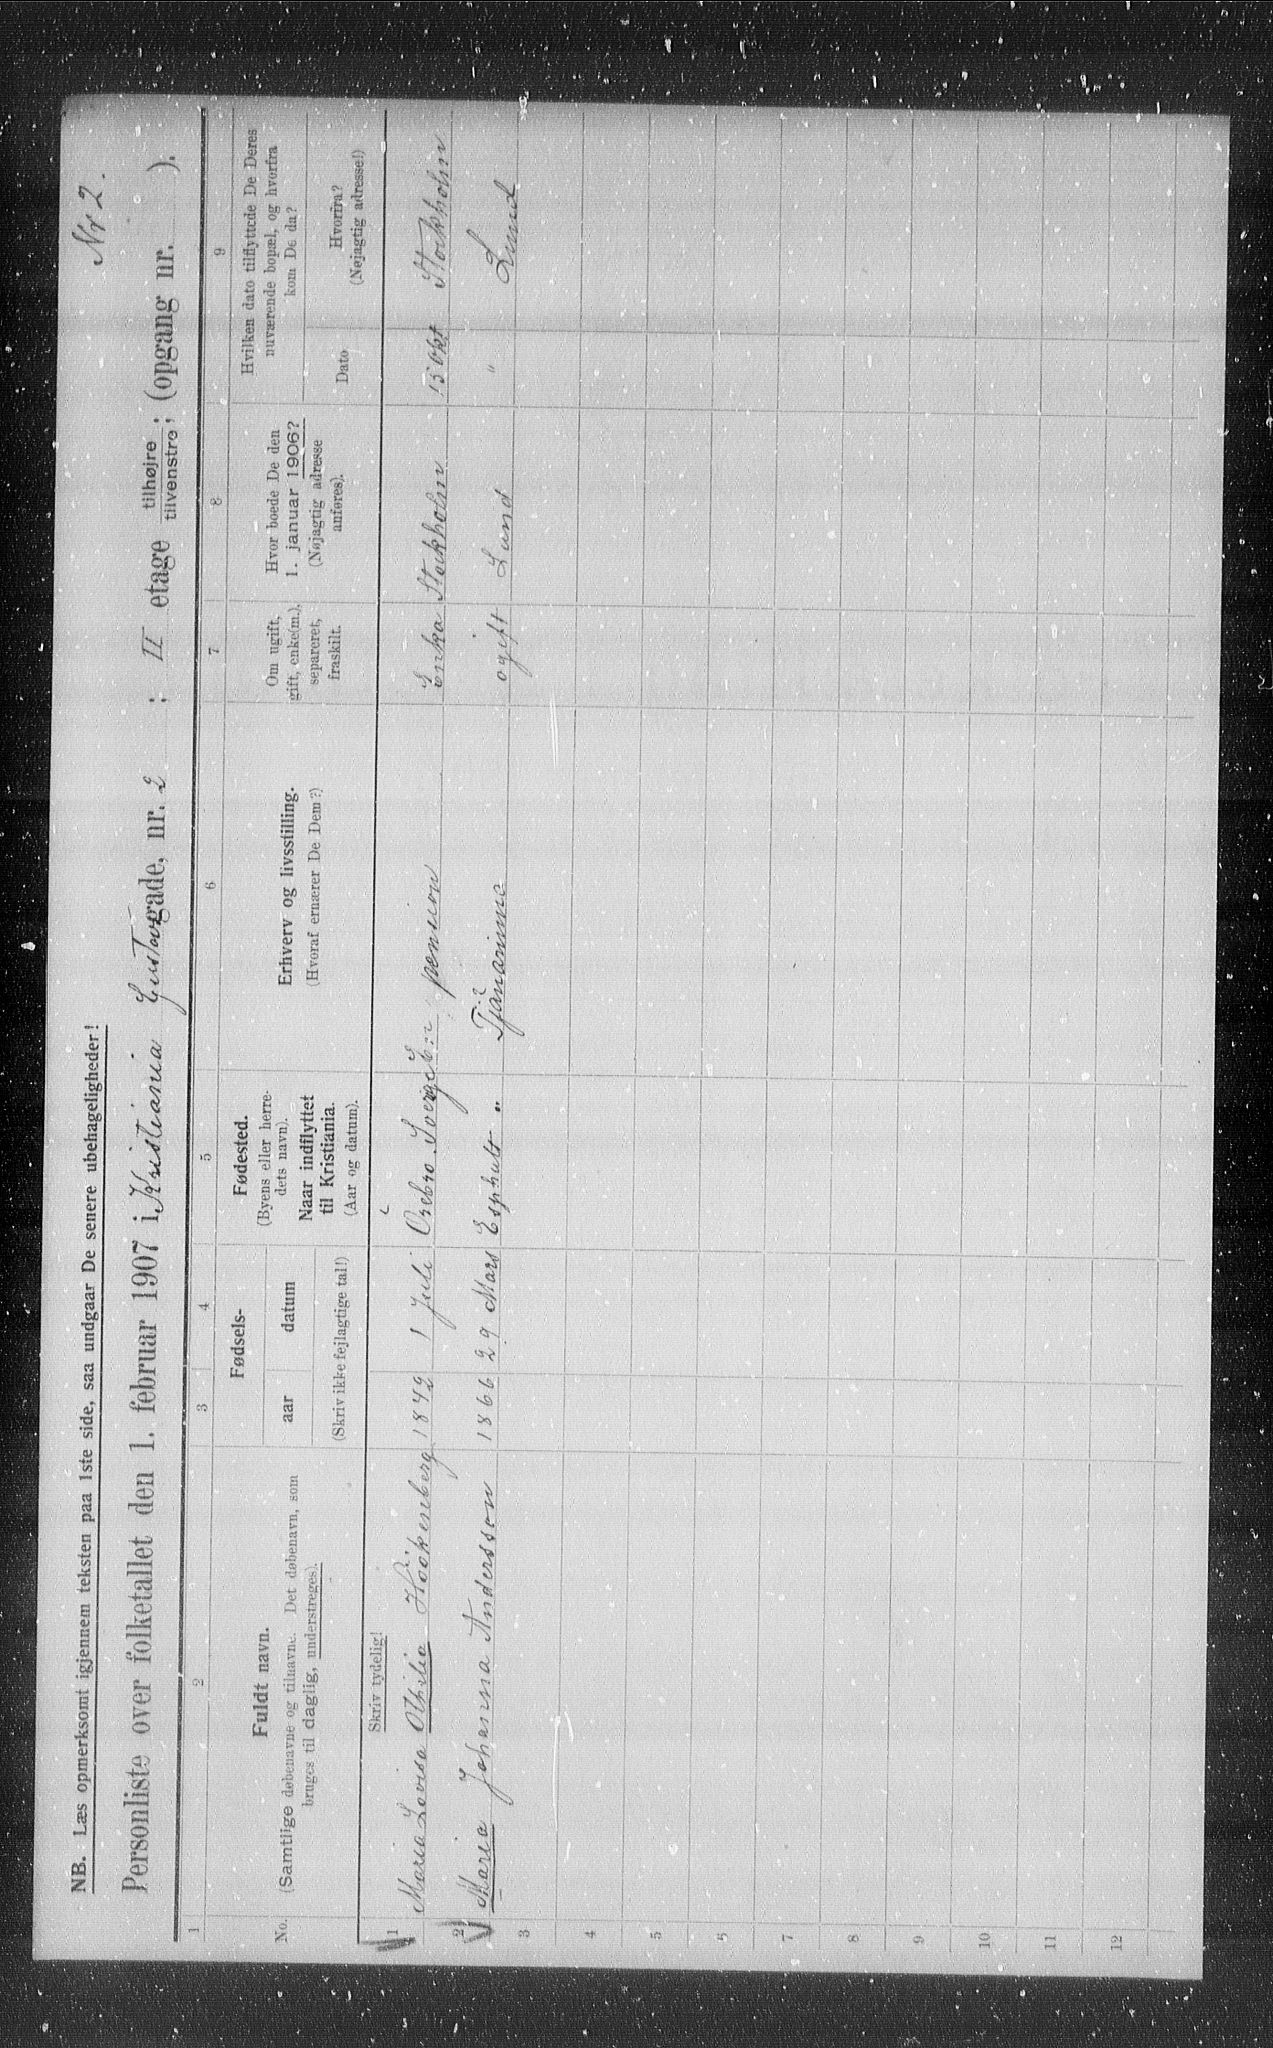 Nr 2.
NB. Læs opmerksomt igjennem teksten paa 1ste side, saa undgaar De senere ubehageligheder!
Personliste over folketallet den 1. februar 1907 i Kristiania Gustavgade, nr. 2 ; II etage tilhøjre tilvenstre; (opgang nr. ).
1 2 3 4 5 6 7 8 9
No.
Fuldt navn.
(Samtlige døbenavne og tilnavne. Det døbenavn, som
bruges til daglig, understreges).
Fødsels-
aar datum
(Skriv ikke fejlagtige tal!)
Fødested.
(Byens eller herre-
dets navn).
Naar indflyttet
til Kristiania.
(Aar og datum).
Erhverv og livsstilling.
(Hvoraf ernærer De Dem?)
Om ugift,
gift, enke(m.),
separeret,
fraskilt.
Hvor boede De den
1. januar 1906?
(Nøjagtig adresse
anføres).
Hvilken dato tilflyttede De Deres
nuværende bopæl, og hvorfra
kom De da?
Dato
Hvorfra?
(Nøjagtig adresse!)
Skriv tydelig!
1 Maria Lovisa Othilia Höökenberg 1842 1 Juli Örebro. Sverge pension Enka Stockholm 15 Okt Stockholm
2 Maria Johanna Andersson 1866 29 Mars Esphult " Tjänarinna ogift Lund " Lund
3
4
5
6
7
8
9
10
11
12